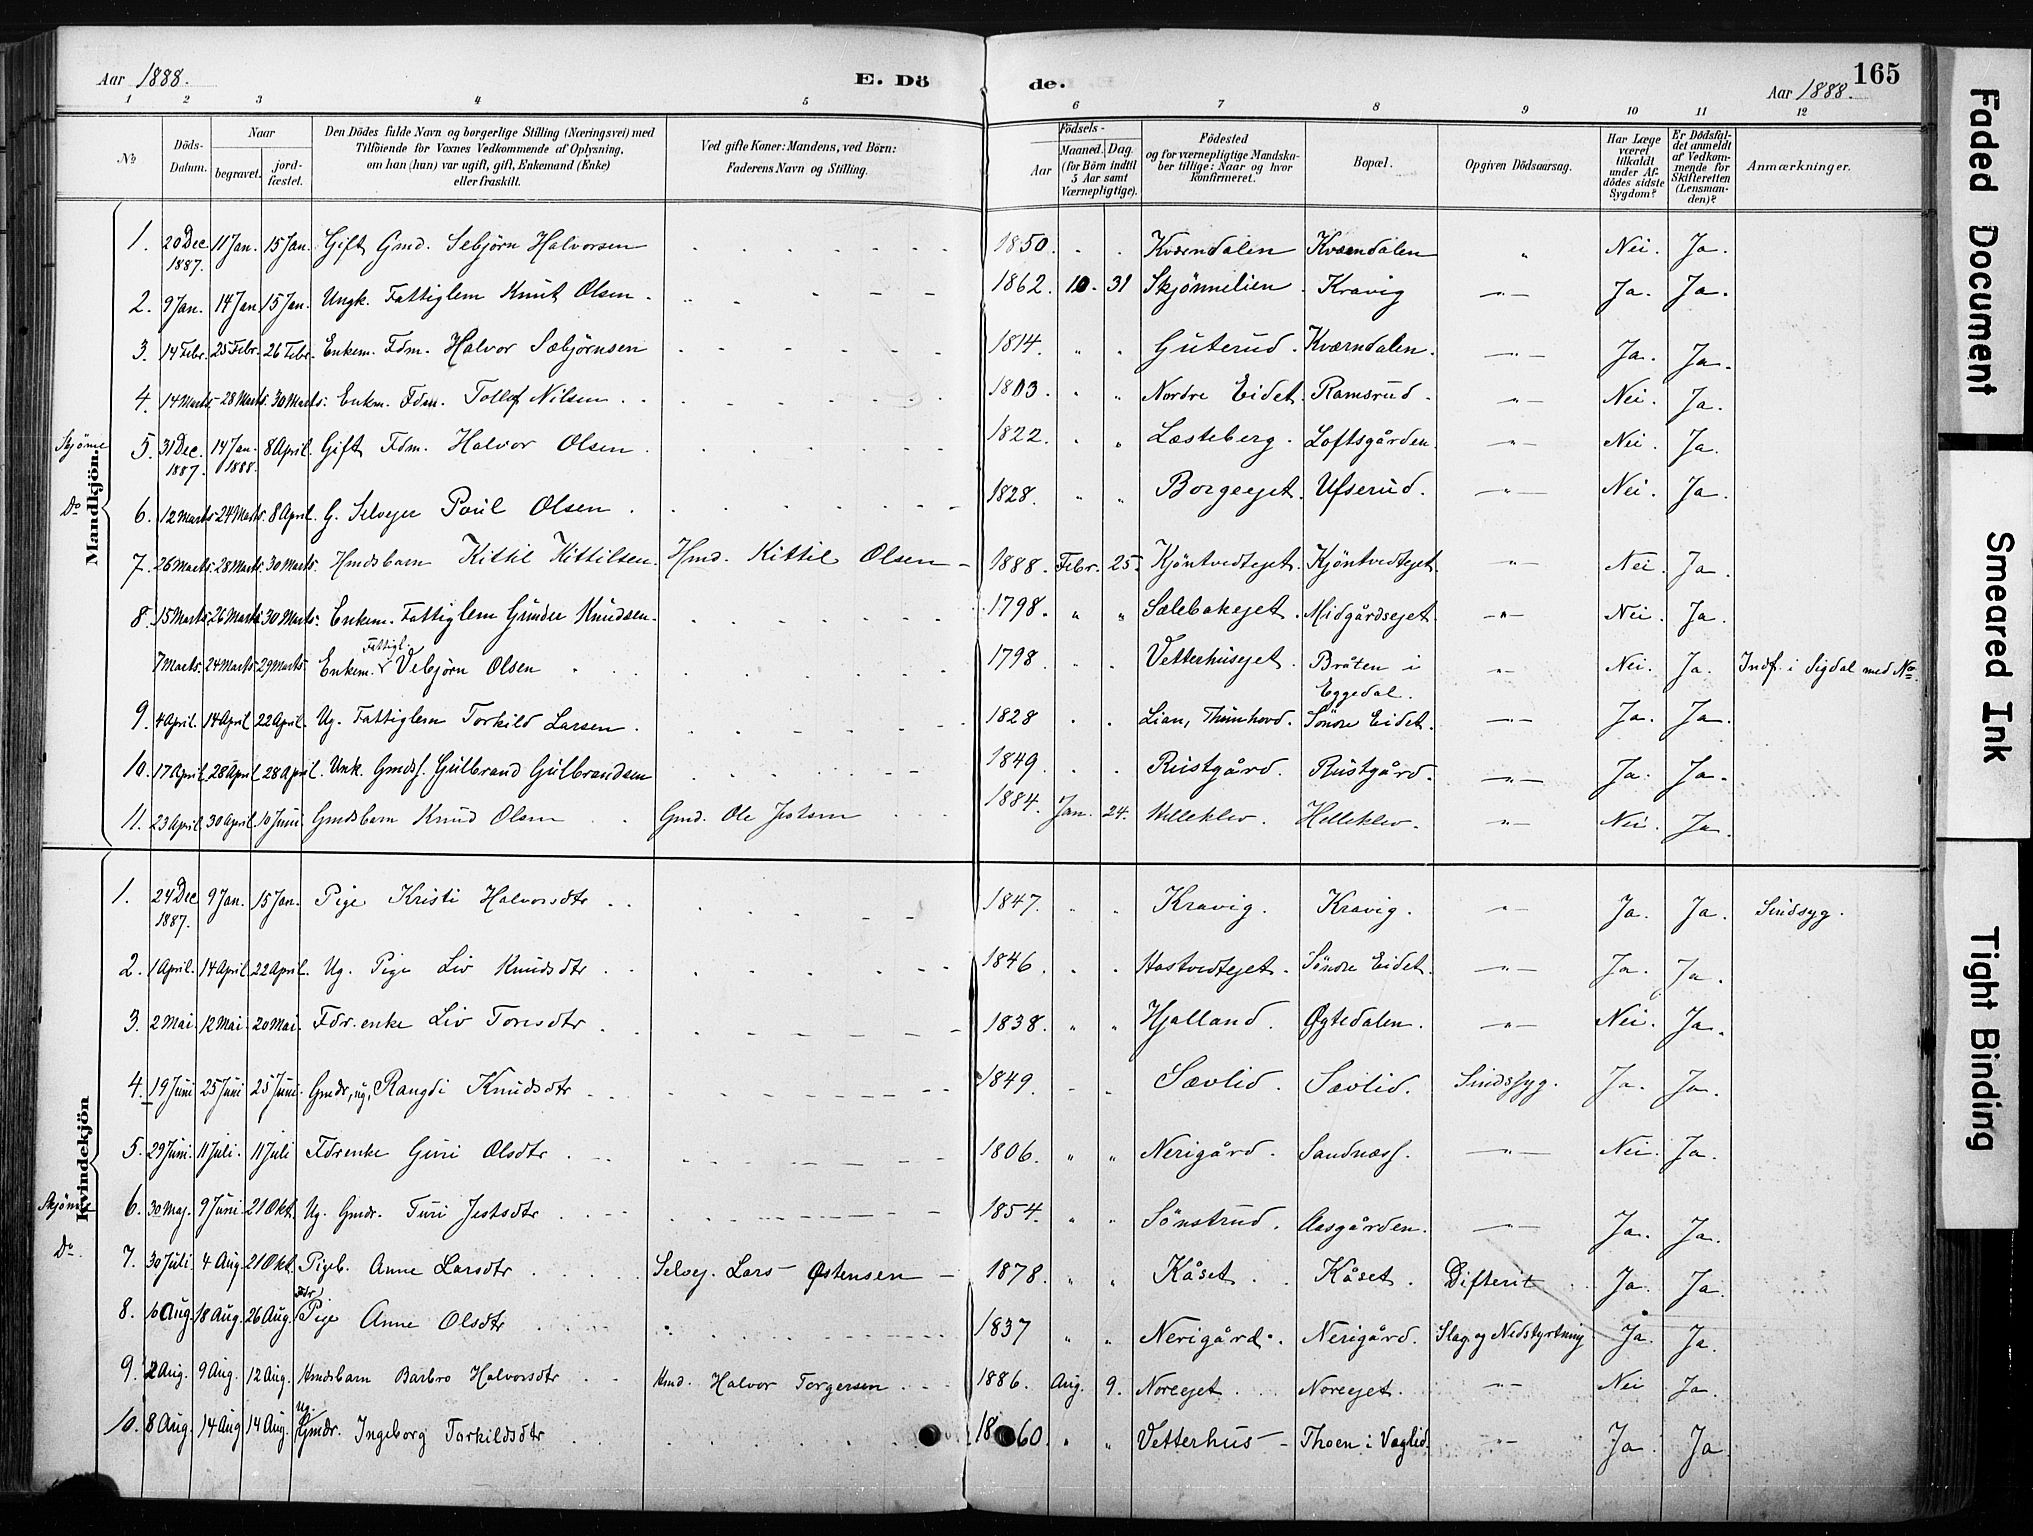 Aar 1888. E. Dö de. Aar 1888. 165
1 2 3 4 5 6 7 8 9 10 11 12
№ Döds-Datum. Naar begravet. jord-fæstet. Den Dödes fulde Navn og borgerlige Stilling (Næringsvei) med Tilföiende for Voxnes Vedkommende af Oplysning, om han (hun) var ugift, gift, Enkemand (Enke) eller fraskilt. Ved gifte Koner: Mandens, ved Börn: Faderens Navn og Stilling. Födsels- Aar Maaned. Dag. (for Börn indtil 5 Aar samt Værnepligtige). Födested og for værnepligtige Mandska-ber tillige: Naar og hvor konfirmeret. Bopæl. Opgiven Dödsaarsag. Har Læge været tilkaldt under Af-dödes sidste Sygdom? Er Dödsfal-det anmeldt af Vedkom-mende for Skifteretten (Lensman-den)? Anmærkninger.
Mandkjön.
1. 20 Dec 1887. 11 Jan. 15 Jan. Gift Gmd. Sebjörn Halvorsen 1850. Kværndalen Kværndalen " Nei. Ja.
2. 9 Jan. 14 Jan 15 Jan. Ungk. Fattiglem Knut Olsen. 1862. 10. 31 Skjönnelien. Kravig —"— Ja. Ja.
3. 14 Febr. 25 Febr. 26 Febr. Enkem. Fdm. Halvor Sæbjörnsen 1814. " " Guterud. Kværndalen. —"— Ja. Ja.
4. 14 Marts. 28 Marts. 30 Marts. Enkm. Fdm. Tollef Nilsen 1803. " " Nordre Eidet. Ramsrud. —"— Nei. Ja.
Skjönne 5. 31 Dec. 1887. 14 Jan. 1888. 8 April. Gift Fdm. Halvor Olsen 1822. " " Læsteberg. Loftsgården. —"— Nei. Ja.
Do 6. 12 Marts 24 Marts. 8 April. G. Selveger Paul Olsen 1828. " " Borgeejet. Ufserud. —"— Nei. Ja.
7. 26 Marts. 28 Marts. 30 Marts. Hmdsbarn Kittil Kittilsen. Hmd. Kittil Olsen — 1888. Febr. 25. Kjöntvedtejet. Kjöntvedtejet. —"— Nei. Ja.
8. 15 Marts. 26 Marts. 30 Marts. Enkem. Fattiglem Gunder Knudsen. 1798. " " Sælebakejet. Midgårdsejet. —"— Nei. Ja.
7 Marts. 24 Marts. 29 Marts. Enkem. Fattigl. Vebjörn Olsen 1798. " " Vetterhusejet. Bråten i Eggedal. —"— Nei. Ja. Indf. i Sigdal med No
9. 4 April. 14 April 22 April. Ug. Fattiglem Torkild Larsen 1828 Lian, Thunhovd. Söndre Eidet. —"— Ja. Ja.
10. 17 April. 28 April 28 April. Unk. Gmdsf. Gulbrand Gulbrandsen 1849. Rustgård. Rustgård. —"— Ja. Ja.
11. 23 April. 30 April. 10 Juni. Gmdsbarn Knud Olsen Gmd. Ole Jostsen 1884. Jan. 24. Helleklev. Helleklev. —"— Nei. Ja.
Kvindekjön
1. 24 Dec 1887. 9 Jan. 15 Jan. Pige Kristi Halvorsdtr 1847. " " Kravig. Kravig. —"— Ja. Ja. Sindsyg.
2. 1 April. 14 April 22 April. Ug. Pige Liv Knudsdtr 1846. Hostvedtejet. Söndre Eidet. —"— Ja. Ja.
3. 2 Mai 12 Mai 20 Mai. Fdr.enke Liv Toresdtr 1838. " " Hjalland. Øgtedalen. —"— Nei. Ja.
4. 19 Juni 25 Juni 25 Juni. Gmdr, ug, Rangdi Knudsdtr 1849. " " Sævlid. Sævlid. Sindssyg. Ja. Ja.
5. 29 Juni. 11 Juli. 11 Juli Fdrenke Guri Olsdtr 1806. " " Nerigård. Sandnæss. —"— Nei. Ja.
Skjönne 6. 30 Maj. 9 Juni. 21 Okt. Ug. Gmdr. Turi Jostsdtr 1854. " " Sönstrud. Aasgården. —"— Ja. Ja.
Do 7. 30 Juli. 4 Aug. 21 Okt. Pigeb. Anne Larsdtr Selvej. Lars Østensen — 1878. " " Kåset. Kåset. Difterit Ja. Ja.
8. 10 Aug. 18 Aug. 26 Aug. Fdr. Pige Anne Olsdtr 1837 " " Nerigård. Nerigård. Slag og Nedstyrtning Ja. Ja.
9. 2 Aug. 9 Aug. 12 Aug. Hmdsbarn Barbro Halvorsdtr Hmd. Halvor Torgersen 1886. Aug. 9. Noreejet. Noreejet. —"— Nei Ja.
10. 8 Aug. 14 Aug 14 Aug. ug. Gmdr. Ingeborg Torkildsdtr 1860. " " Vetterhus — Thoen i Væglid. —"— Ja. Ja
Faded Document
Smeared Ink
Tight Binding